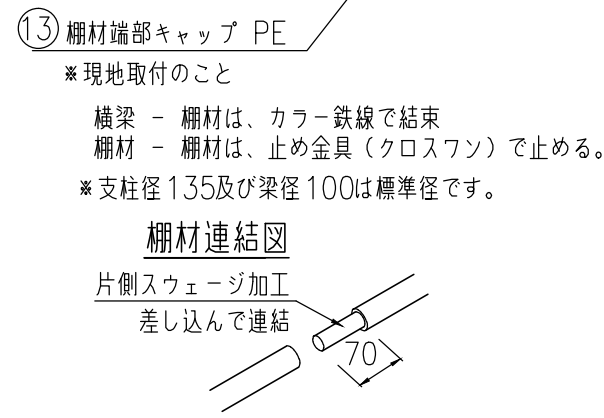 ⑬ 棚材端部キャップ PE
※現地取付のこと
横梁 － 棚材は、カラー鉄線で結束
棚材 － 棚材は、止め金具（クロスワン）で止める。
※支柱径135及び梁径100は標準径です。
棚材連結図
片側スウェージ加工
差し込んで連結
70